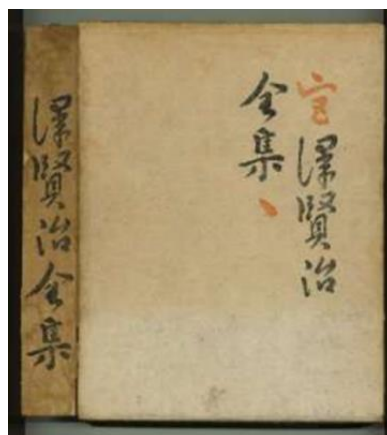 宮澤賢治
全集
澤賢治全集